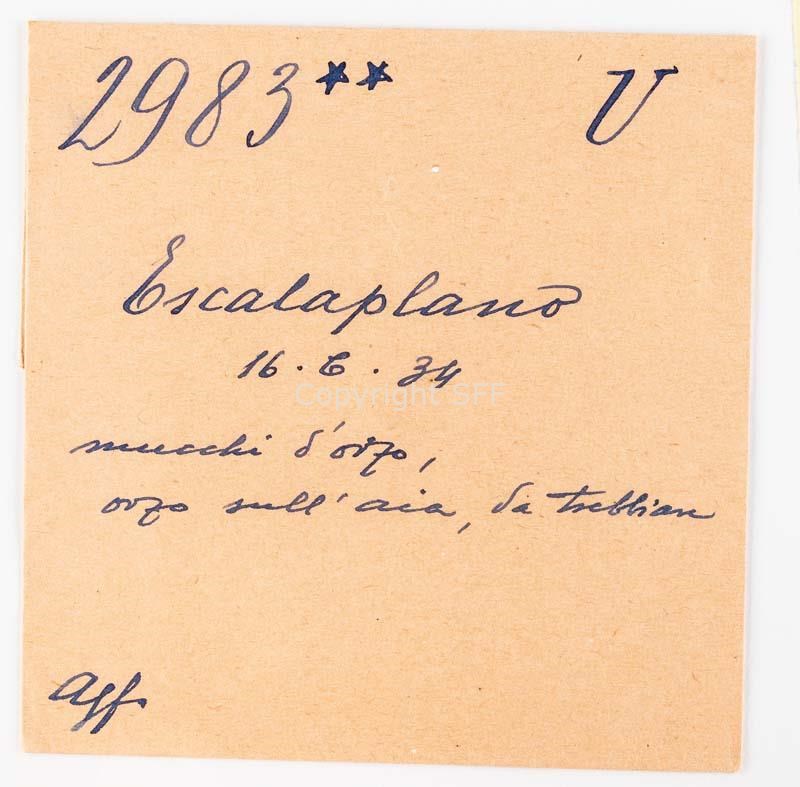 2983** V
Escalaplano
16.6.34
mucchi d'orzo,
orzo sull'aia, da trebbiare
Agf.
Copyright SFF